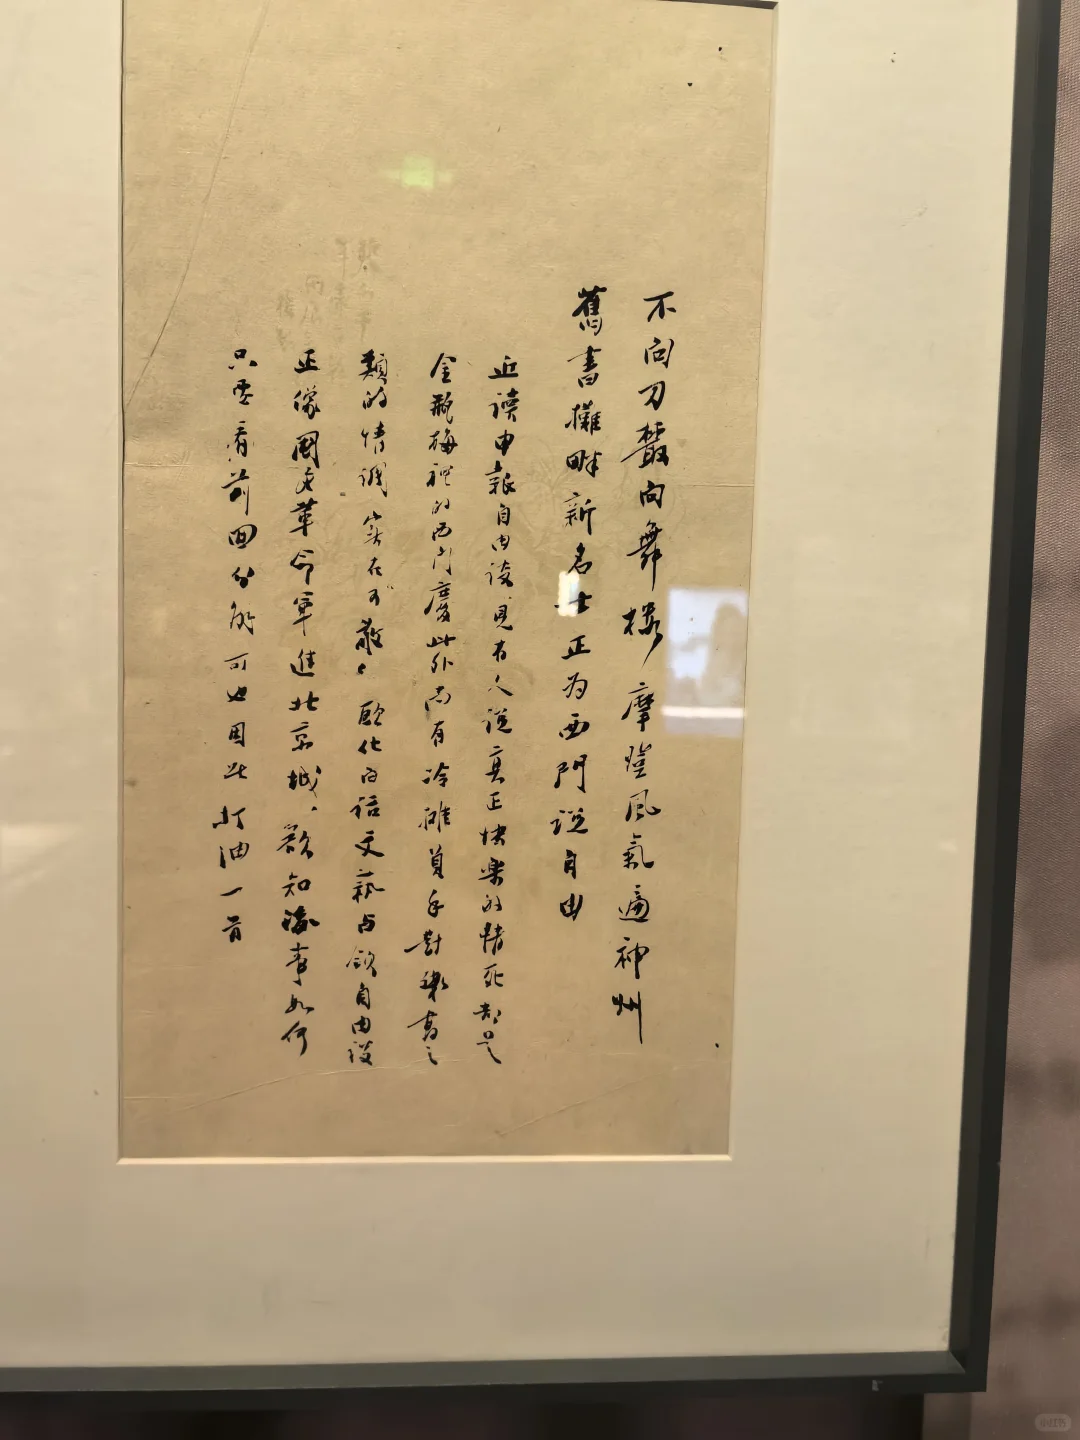 不向刀叢向舞樓摩登風氣遍神州
舊書攤畔新名士正為西門說自由
近讀申報自由談見有人說真正快樂的情死都是
金瓶梅裡的西門慶此外尚有冷攤負手對殘書之
類的情調實在可敬歐化白話文藝占領自由談
正像國民革命軍進北京城欲知後事如何
只要看前回分解可也因此打油一首
小红书